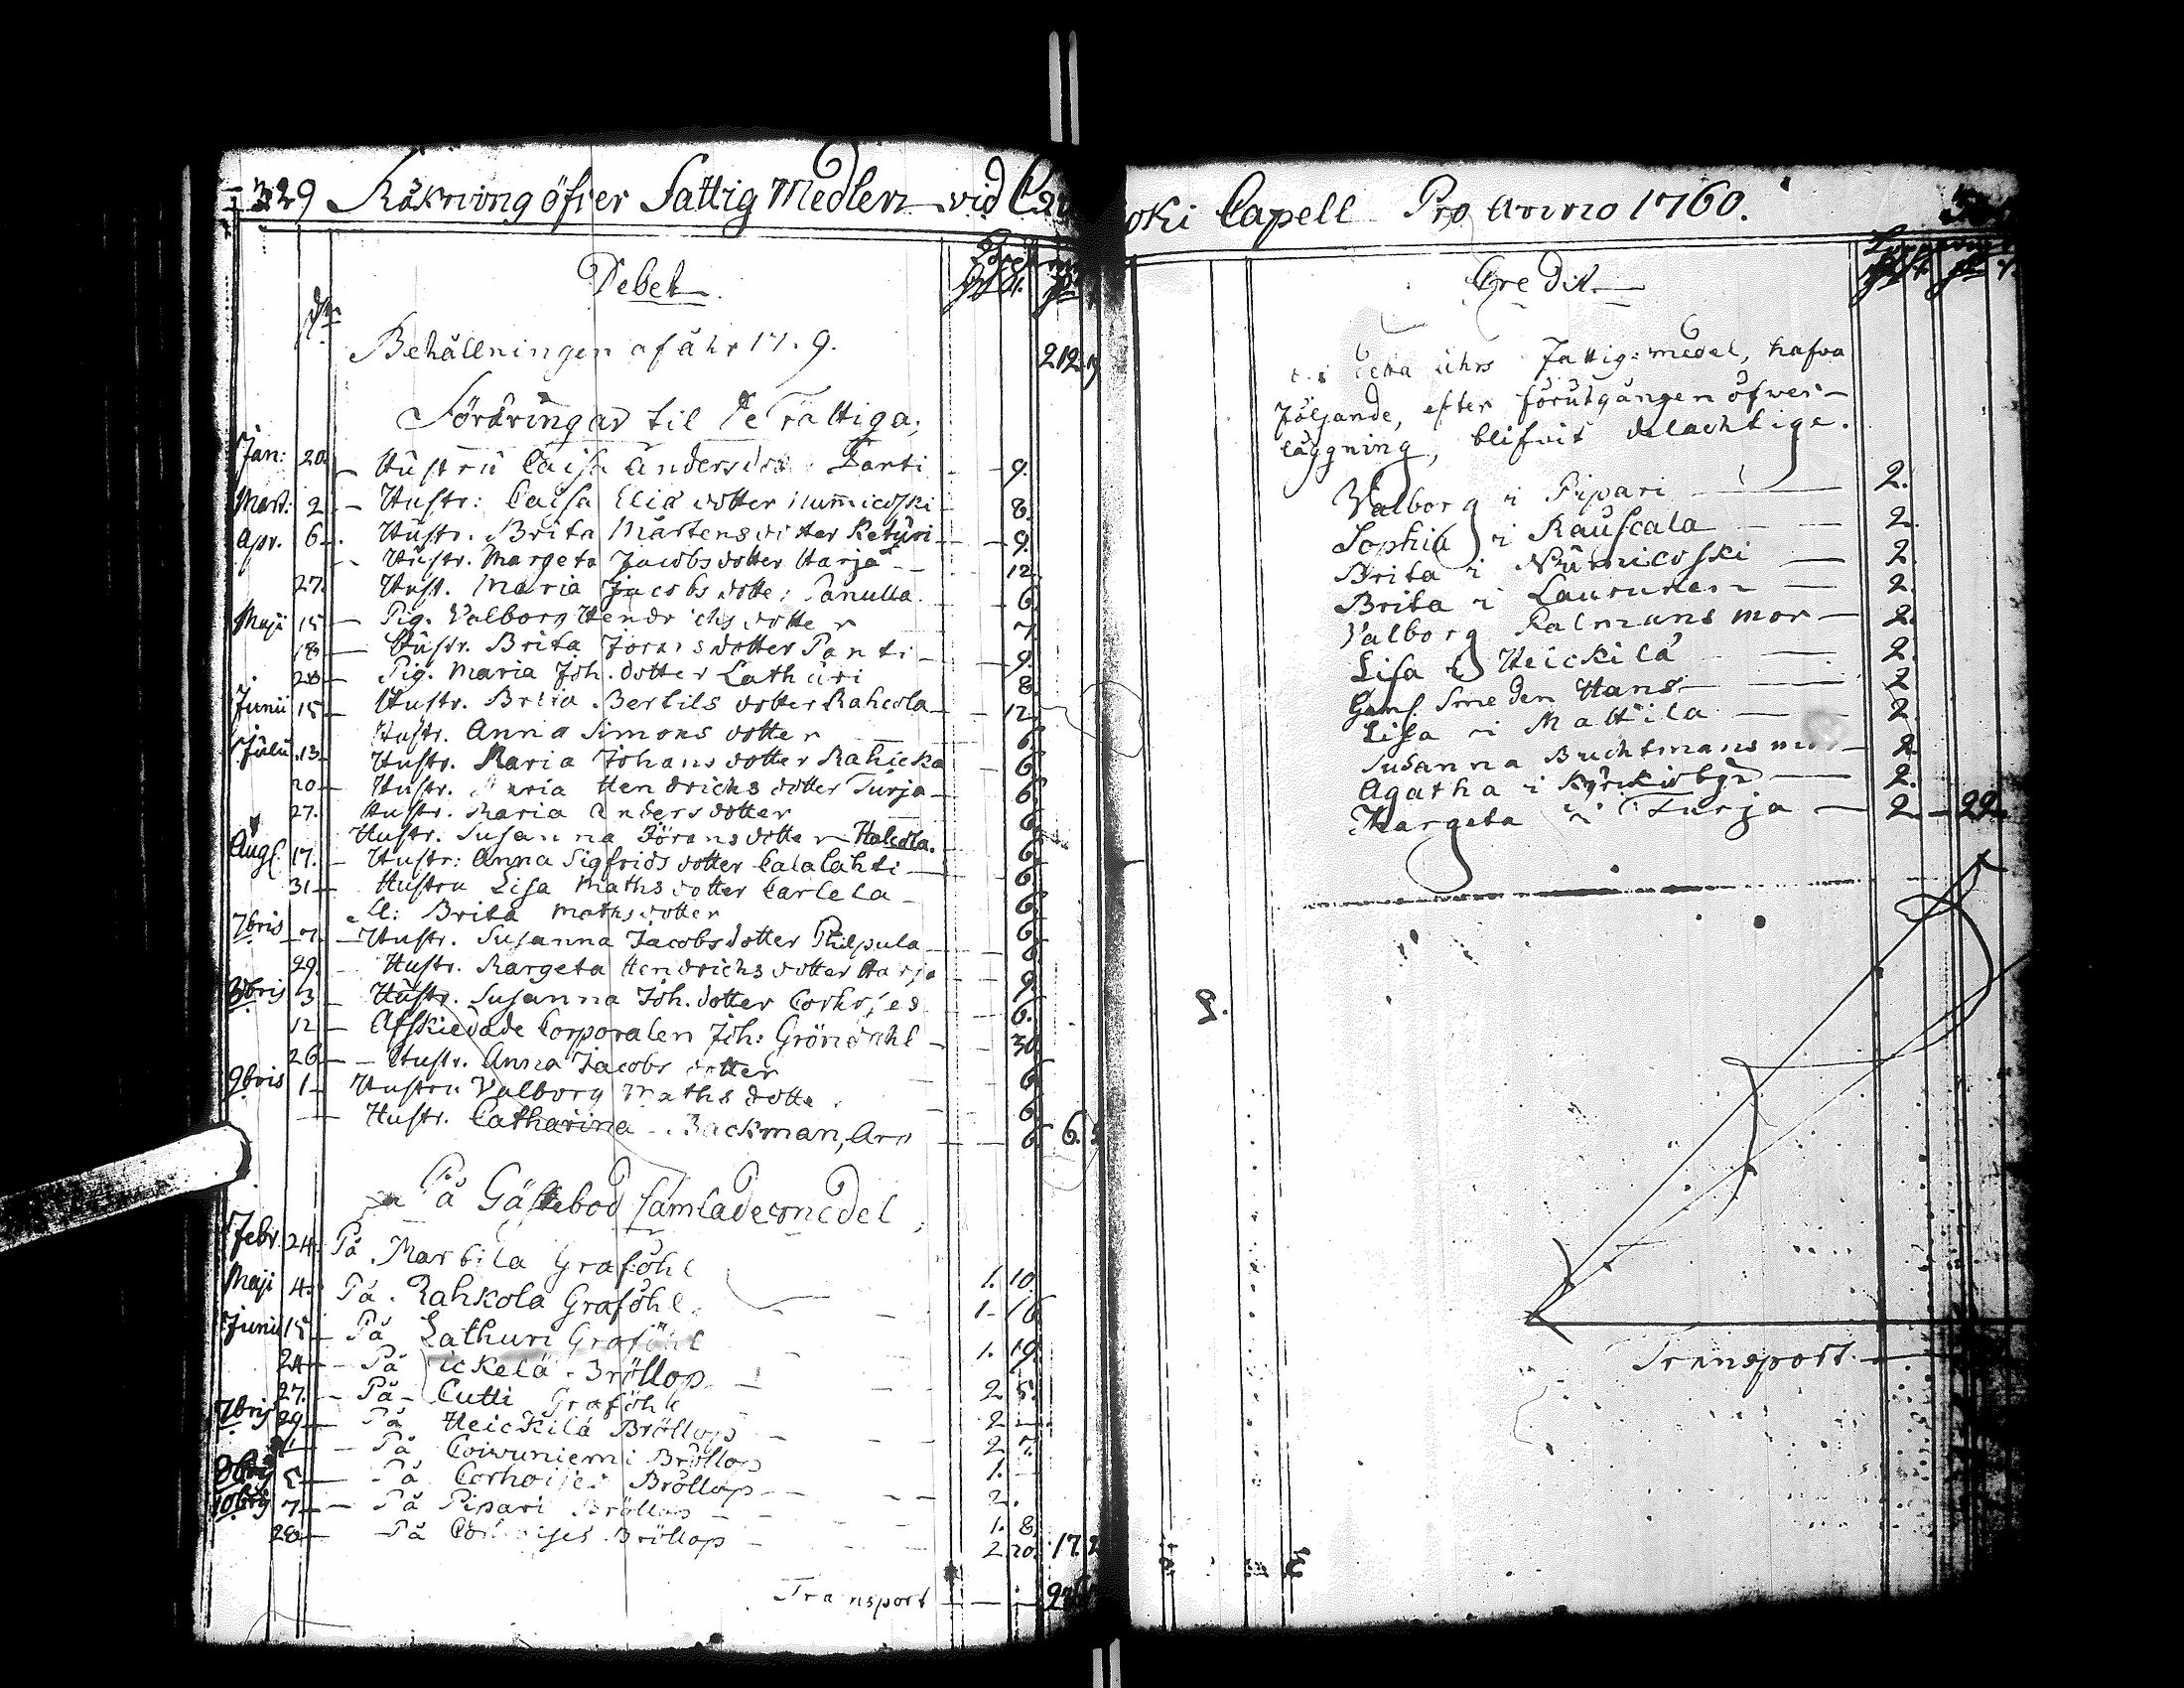 329 Räkning öfver Fattig Medlen vid
oki Capell Pro Anno 1760.
Debet
Behållningen af åhr 17.9. 212.
Föräringar til De Fattiga;
Jan: 20. Hustru Caisa Andersdot: Panti 9.
Mart: 2. Hustr: Caisa Elia dotter Num̄icoski 8.
Apr. 6. Hustr. Brita Mårtens dotter Keturi 9.
Hustr. Margeta Jacobs dotter Harja 12.
27. Hust. Maria Jacobs dotte: Panulla 6.
Maji 15 Pig. Valborg Hendrichs dotter 7.
18 Hustr. Brita Jörans dotter Panti 9.
28 Pig. Maria Joh. dotter Lathuri 8.
Junii 15 Hustr. Brita Bertils dotter Rahcola 12.
Hustr. Anna Simons dotter 6.
Julii 13. Hustr. Maria Johans dotter Rahicka 6.
20 Hustr. Maria Hendrichs dotter Turja 6.
27. Hustr. Maria Anders dotter 6.
Hustr. Susanna Jörans dotter Halcola. 6.
Augs. 17. Hustr: Anna Sigfrids dotter Calalahti 6.
31 Hustru Lisa Maths dotter Carlela 6.
Brita Maths dotter 6.
7bris 7. Hustr. Susanna Jacobs dotter Philpula 6.
29. Hustr. Margeta Hendrichs dotter Harja 9.
3 Hustr. Susanna Joh. dotter 6.
12 Afskiedade Corporalen Joh: Gröndahl 30.
26 Hustr. Anna Jacobs dotter 6.
9bris 1 Hustru Valborg Maths dotte 6.
Hustr. Catharina Backman, 6 6.
På Gästebod samlade medel
Febr. 24. På Martila Graföhl 1. 10.
Maji 4. På Rahkola Graföhl 1. 16
Junii 15 På Lathuri Graföhl 1. 19.
24 På Bröllop 2 5.
27. På Cutti Graföhl 2
7bris 29. På Heickilä Bröllop 2 7.
På Coivuniemi Bröllop 1.
På Bröllop 2.
10bris 7 På Pipari Bröllop 1. 8.
28 På Bröllop 2 20. 17.2
Transport
Credit
Fattig: medel, hafva
följande, efter förutgången öfver-
läggning, blifvit delachtige.
Valborg i Pipari 2.
Sophia i Rauscala 2.
Brita i Num̄icoski 2.
Brita i Laurunen 2.
Valborg Kalmans mor 2.
Lisa i Heickilä 2.
Gaml. Smeden Hans 2
Lisa i Mattila 2.
Susanna Buchtmans mor 2.
Agatha i Kyrckiobyn 2.
Margeta i Turja 2. 22.
Transport.